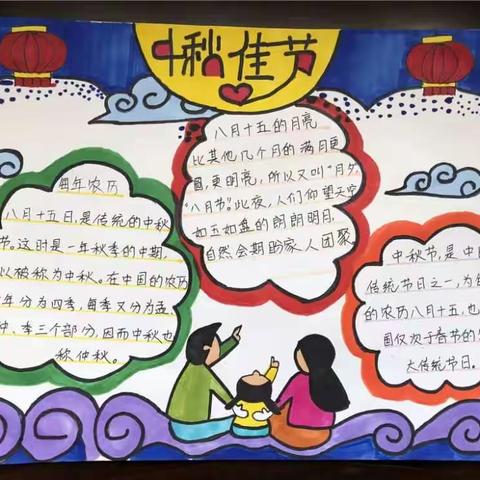 中秋佳节
每年农历
八月十五日,是传统的中秋
节。这时是一年秋季的中期,
以被称为中秋。在中国的农历
年分为四季,每季又分为孟、
仲、季三个部分,因而中秋也
称仲秋。
八月十五的月亮
比其他几个月的满月更
圆,更明亮,所以又叫"月夕",
"八月节"。此夜,人们仰望天空
如玉如盘的朗朗明月,
自然会期盼家人团聚。
中秋节,是中
传统节日之一,为每
的农历八月十五,也
国仅次于春节的
大传统节日。